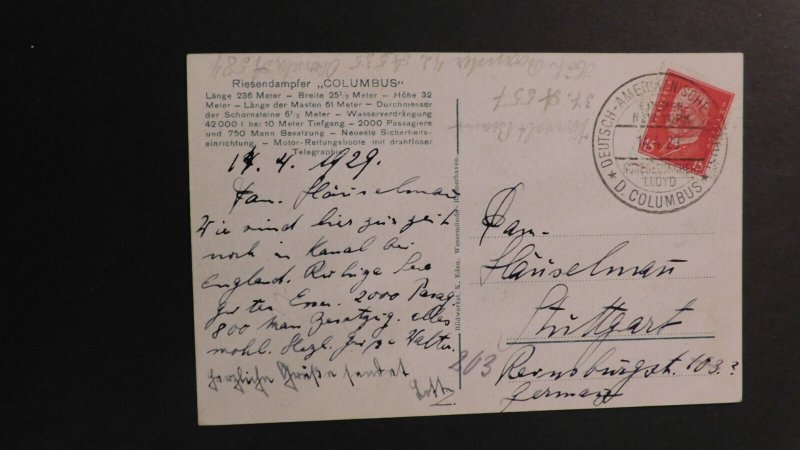 Riesendampfer „COLUMBUS"
Länge 236 Meter - Breite 25½ Meter - Höhe 32
Meter - Länge der Masten 61 Meter - Durchmesser
der Schornsteine 6½ Meter - Wasserverdrängung
42000 t bei 10 Meter Tiefgang - 2000 Passagiere
und 750 Mann Besatzung - Neueste Sicherheits-
einrichtung - Motor-Rettungsboote mit drahtloser
Telegraphie
14.4.1929.
Fam. Häuselman
Wir sind hier zur zeit
noch in Kanal bei
England. Ruhige See
gutes Essen. 2000 Passag.
800 Man Besatzig. alles
wohl. Herzl. Grüße Walter.
herzliche Grüße sendet
Lotte
Bildwerkst. K. Eden, Wesermünde-Bremerhaven
DEUTSCH-AMERIK
BREMEN-
NEW YORK
NORDDEUTSCHER
LLOYD
★ D. COLUMBUS ★
15 15
Fam.
Häuselman
Stuttgart
203 Rensburgst. 103.?
Germany